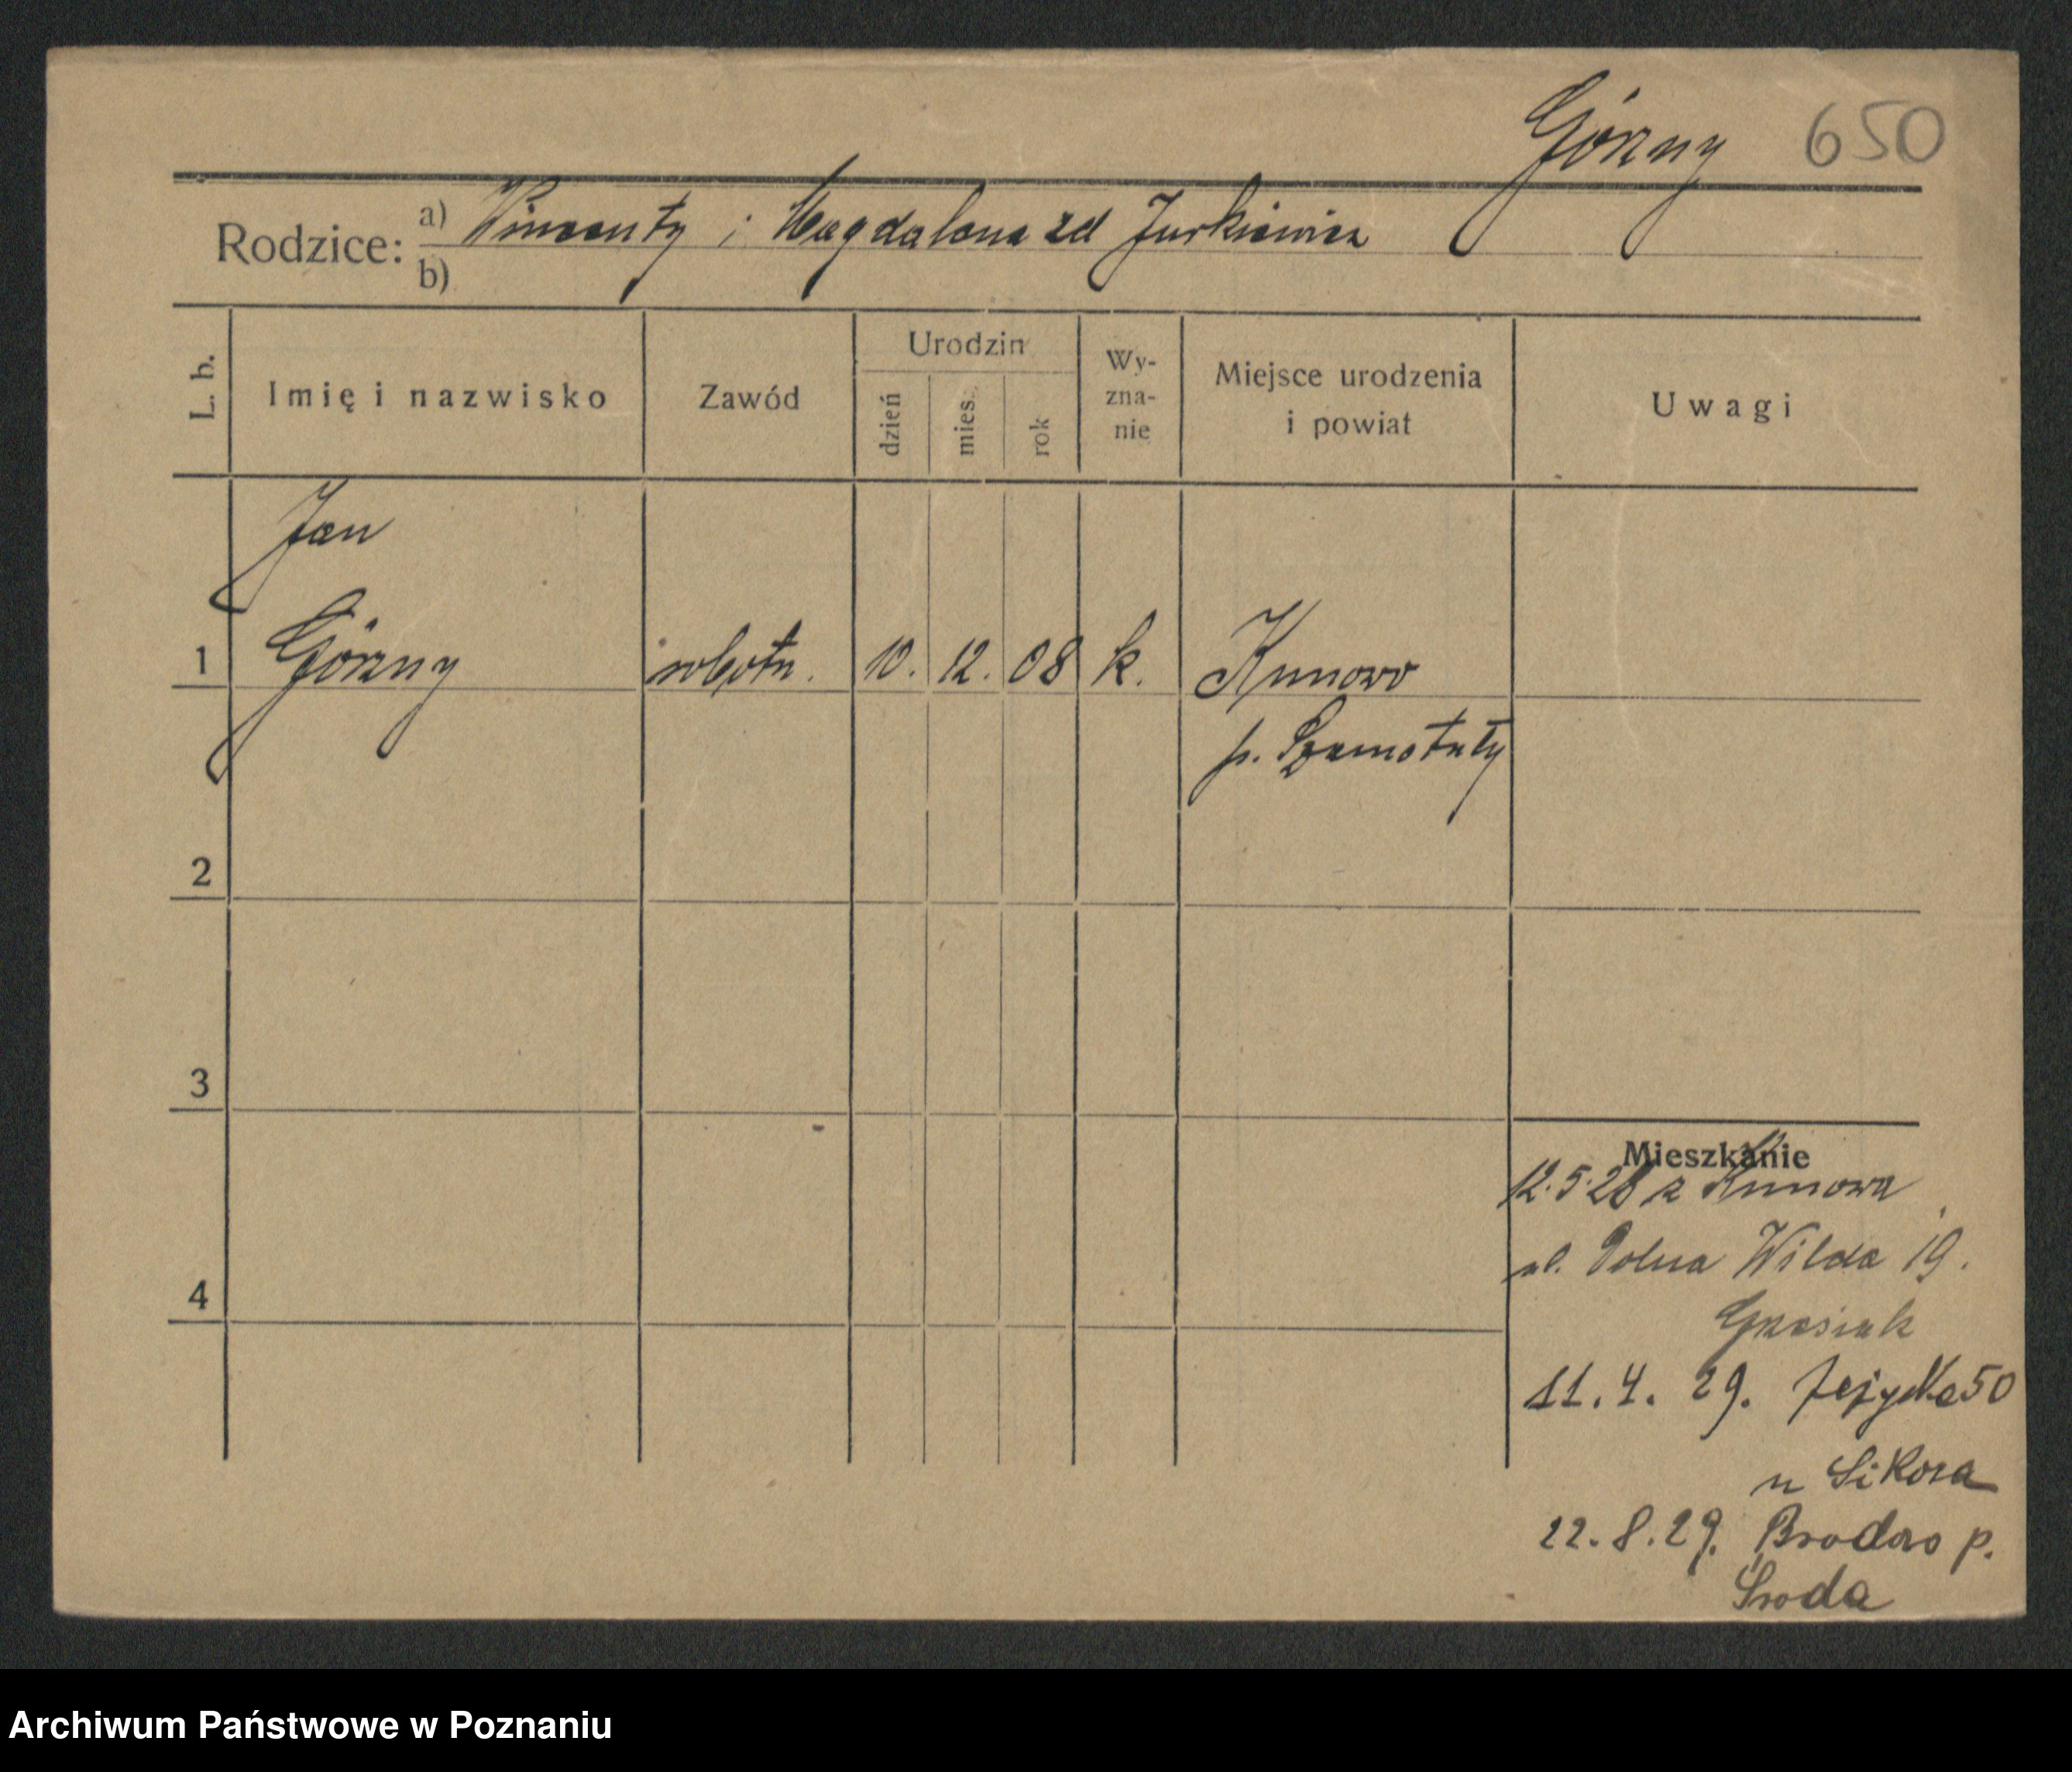 Górny 650
Rodzice: a) Wincenty i Magdalena zd Jurkiewicz
b)
L. b. Imię i nazwisko Zawód Urodzin dzień mies. rok Wy-zna-nie Miejsce urodzenia i powiat Uwagi
Jan
1 Górny robotn. 10. 12. 08 k. Kunowo
p. Szamotuły
2
3
Mieszkanie
12.5.28 z Kunowa
ul. Dolna Wilda 19.
4
Grzesiak
11. 4. 29. 50
u Sikora
22. 8. 29. Brodowo p.
Środa
Archiwum Państwowe w Poznaniu